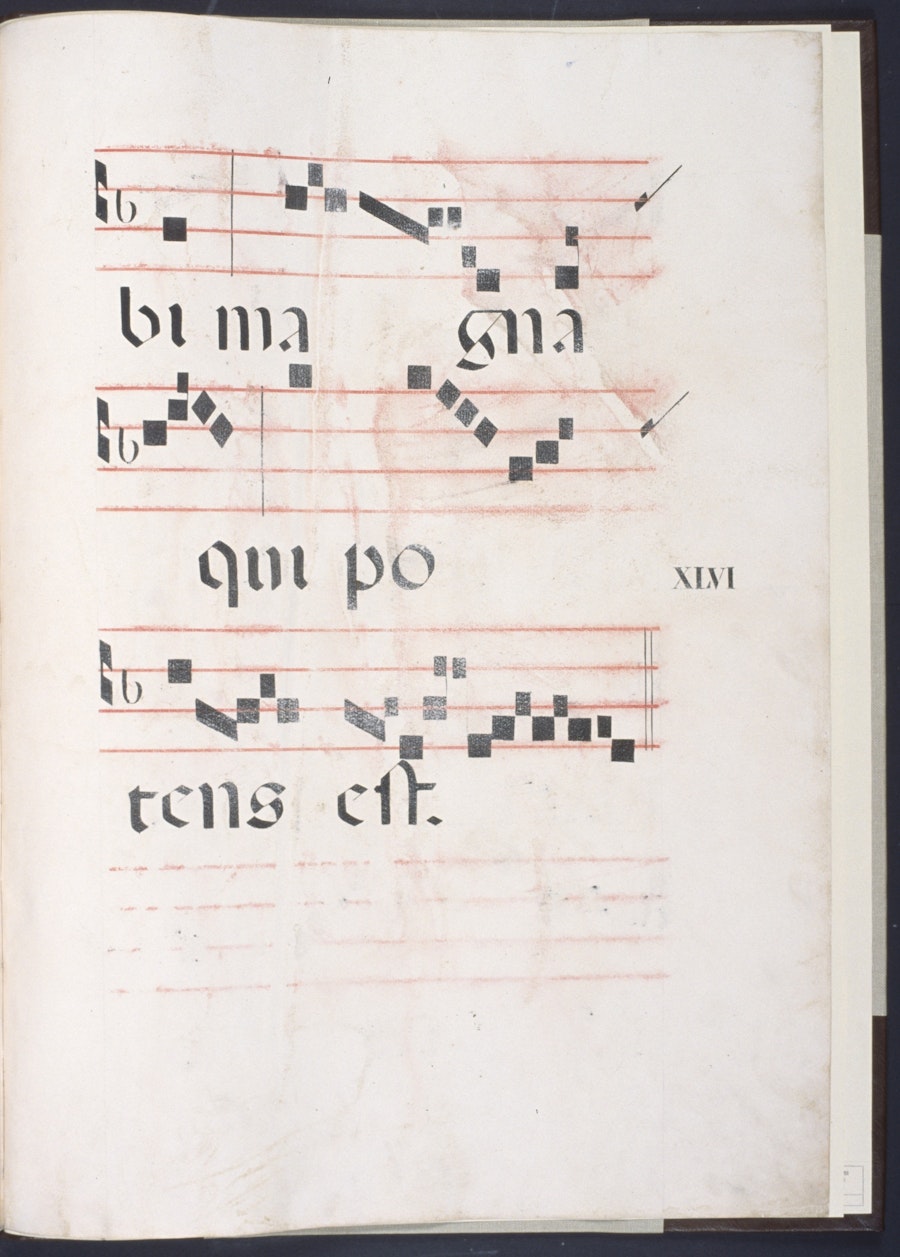 bi ma gna
qui po
XLVI
tens est.